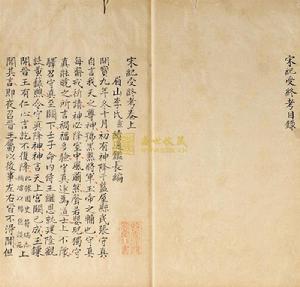 宋紀受終考目錄
宋紀受終考卷上
眉山李氏燾續通鑑長編
開寶九年冬十月初有神降于盩厔縣民張守真
自言我天之尊神號黑殺將軍玉帝之輔也守真
每齋戒祈請神必降室中風肅然聲若嬰兒獨守
真能曉之所言禍福多驗守真遂為道士上不豫
驛召守真至闕下壬子命內侍王繼恩就建隆觀
設黃籙醮令守真降神神言天上宮闕已成玉鏁
開晉王有仁心言訖不復降
上
聞其言即夜召晉王屬以後事左右皆不得聞但